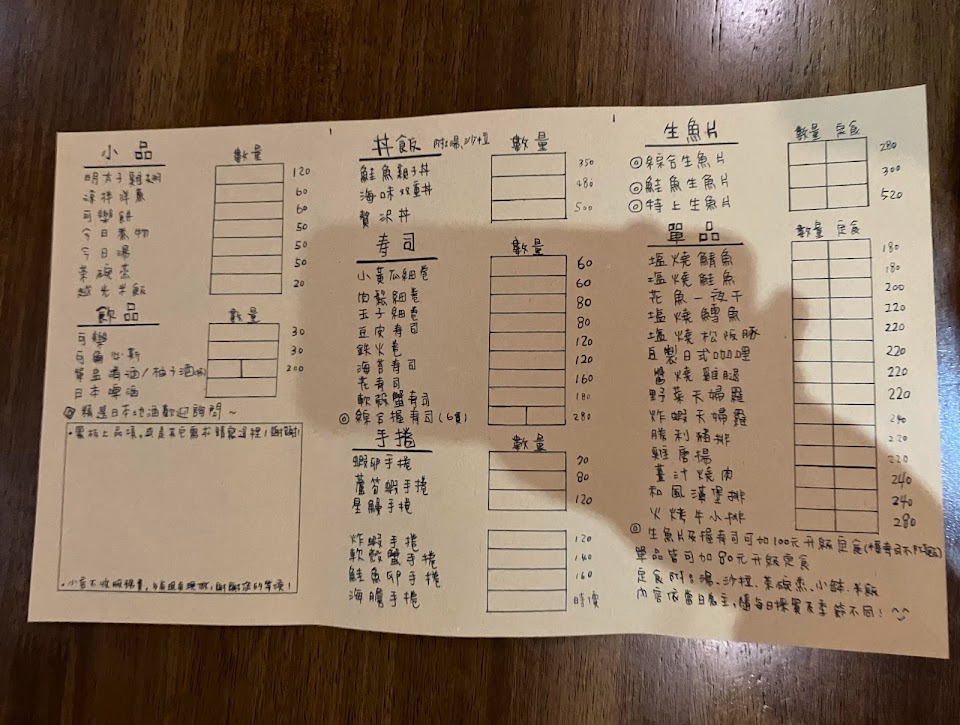 小品 數量
明太子雞翅 120
涼拌洋蔥 60
可樂餅 60
今日煮物 50
今日湯 50
茶碗蒸 50
越光米飯 20
飲品 數量
可樂 30
可爾必斯 30
單呈清酒/柚子酒 200
日本啤酒
◎精選日本地酒歡迎詢問~
•小店不收服務費,
丼飯 附湯、沙拉 數量
鮭魚親子丼 350
海味双重丼 480
贅沢丼 500
壽司 數量
小黃瓜細卷 60
肉鬆細卷 60
玉子細卷 80
豆皮壽司 80
鉄火卷 120
海苔壽司 120
花壽司 160
軟殼蟹壽司 180
◎綜合握壽司(6貫) 280
手捲 數量
蝦卵手捲 70
蘆筍蝦手捲 80
星鰻手捲 120
炸蝦手捲 120
軟殼蟹手捲 140
鮭魚卵手捲 160
海膽手捲 時價
生魚片 數量 定食
◎綜合生魚片 280
◎鮭魚生魚片 300
◎特上生魚片 520
單品 數量 定食
塩燒鯖魚 180
塩燒鮭魚 180
花魚一夜干 200
塩燒鱈魚 220
塩燒松阪豚 220
自製日式咖哩
醬燒雞腿 220
野菜天婦羅 220
炸蝦天婦羅 240
勝利豬排 220
雞唐揚 220
薑汁燒肉 240
和風漢堡排 240
火烤牛小排 280
◎生魚片及握壽司可加100元升級定食
單品皆可加80元升級定食
定食附:湯、沙拉、茶碗蒸、小缽、米飯
內容依當日為主,隨每日採買及季節不同!^^